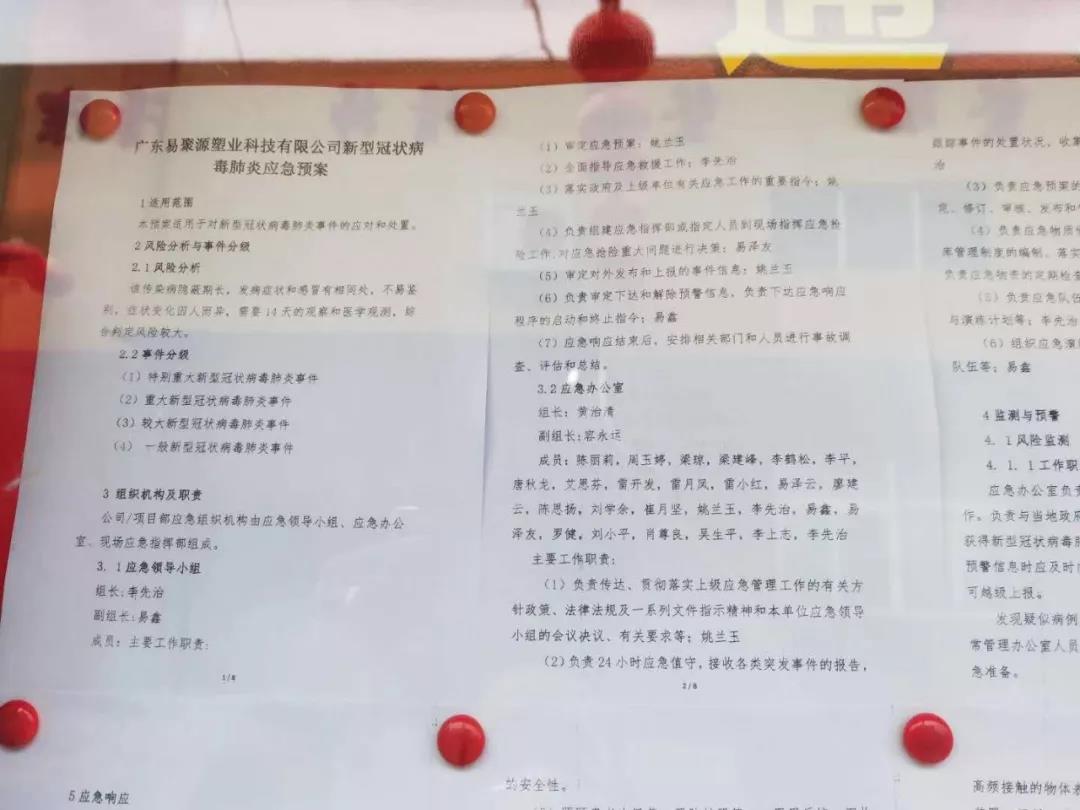 通
广东易聚源塑业科技有限公司新型冠状病
毒肺炎应急预案
1 适用范围
本预案适用于对新型冠状病毒肺炎事件的应对和处置。
2 风险分析与事件分级
2.1 风险分析
该传染病隐蔽期长，发病症状和感冒有相同处，不易鉴
别，症状变化因人而异，需要 14 天的观察和医学观测，综
合判定风险较大。
2.2 事件分级
（1）特别重大新型冠状病毒肺炎事件
（2）重大新型冠状病毒肺炎事件
（3）较大新型冠状病毒肺炎事件
（4） 一般新型冠状病毒肺炎事件
3 组织机构及职责
公司/项目部应急组织机构由应急领导小组、应急办公
室、现场应急指挥部组成。
3．1 应急领导小组
组长:李先治
副组长:易鑫
成员：主要工作职责:
1/8
（1）审定应急预案；姚兰玉
（2）全面指导应急救援工作；李先治
（3）落实政府及上级单位有关应急工作的重要指令；姚
兰玉
（4）负责组建应急指挥部或指定人员到现场指挥应急抢
险工作,对应急抢险重大问题进行决策；易泽友
（5）审定对外发布和上报的事件信息；姚兰玉
（6）负责审定下达和解除预警信息，负责下达应急响应
程序的启动和终止指令；易鑫
（7）应急响应结束后，安排相关部门和人员进行事故调
查、评估和总结。
3.2 应急办公室
组长：黄治清
副组长:容永运
成员：陈丽莉，周玉婷，梁琼，梁建峰，李鹤松，李平，
唐秋龙，艾思芬，雷开发，雷月凤，雷小红，易泽云，廖建
云，陈恩扬，刘学余，崔月坚，姚兰玉，李先治，易鑫，易
泽友，罗健，刘小平，肖尊良，吴生平，李上志，李先治
主要工作职责:
（1）负责传达、贯彻落实上级应急管理工作的有关方
针政策、法律法规及一系列文件指示精神和本单位应急领导
小组的会议决议、有关要求等；姚兰玉
（2）负责 24 小时应急值守，接收各类突发事件的报告，
2/8
跟踪事件的处置状况，收集
治
（3）负责应急预案的
、修订、审核、发布和
（4）负责应急物质
库管理制度的编制、落实
负责应急物资的定期检查
（5）负责应急队伍
与演练计划等；李先治
（6）组织应急演
队伍等；易鑫
4 监测与预警
4．1 风险监测
4．1．1 工作职
应急办公室负责
作。负责与当地政府
获得新型冠状病毒肺
预警信息时应及时
可越级上报。
发现疑似病例
常管理办公室人员
急准备。
5 应急响应
的安全性。
高频接触的物体表